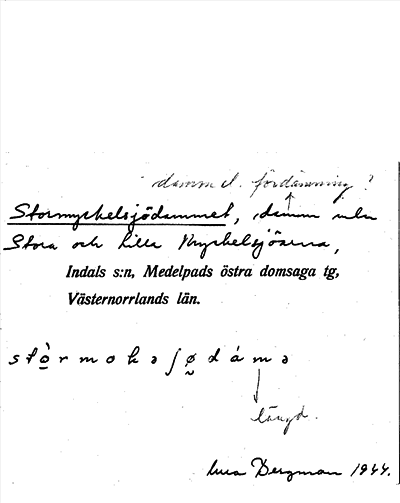 damm el. fördämning?
Stormyckelsjödammet, damm utan
Stora och Lilla Myckelsjöarna,
Indals s:n, Medelpads östra domsaga tg,
Västernorrlands län.
stò̠rmokəʃø̰dámə
längd.
Bergman 1944.